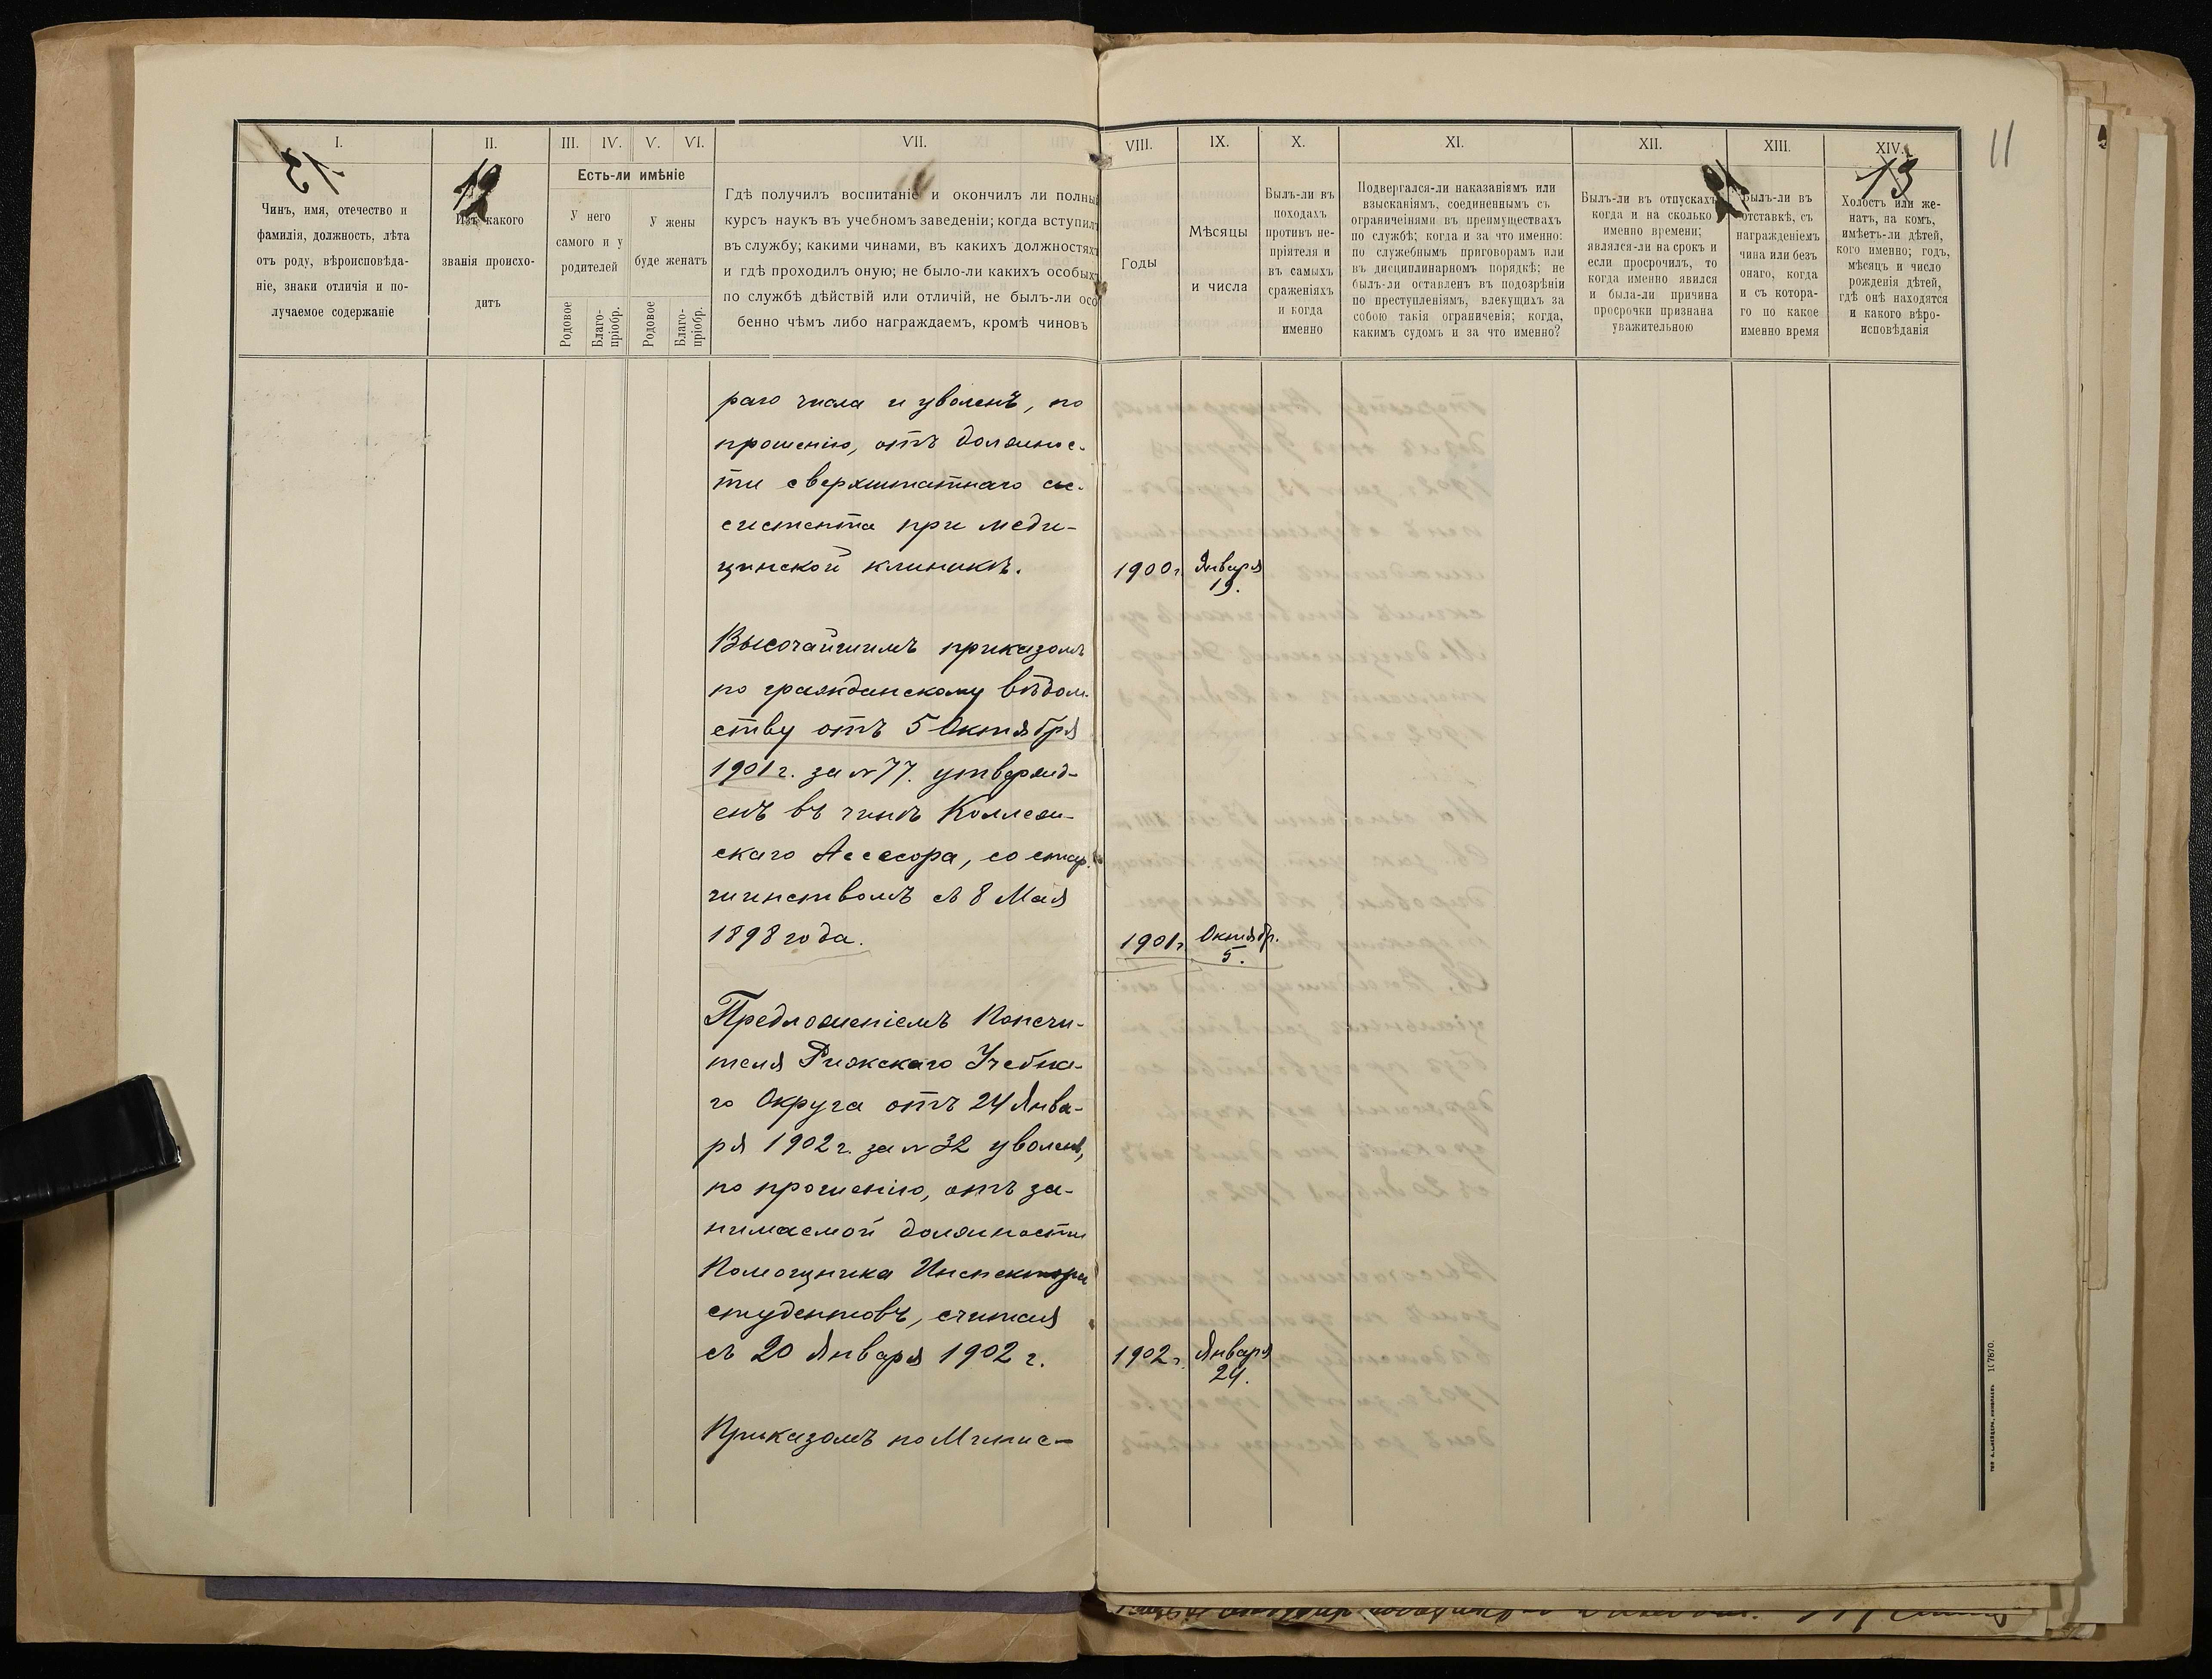 11
I.
II.
III.
IV.
V.
VI.
VII.
VIII.
IX.
X.
XI.
XII.
XIII.
XIV.
13
12
13
Чинъ, имя, отечество и
фамилія, должность, лѣта
отъ роду, вѣроисповѣда-
ніе, знаки отличія и по-
лучаемое содержаніе
Изъ какого
званія происхо-
дитъ
Есть-ли имѣніе
У него
самого и у
родителей
У жены
буде женатъ
Родовое
Благо-
пріобр.
Родовое
Благо-
пріобр.
Гдѣ получилъ воспитаніе и окончилъ ли полны
курсъ наукъ въ учебномъ заведеніи; когда вступил
въ службу; какими чинами, въ какихъ должностях
и гдѣ проходилъ оную; не было-ли какихъ особых
по службѣ дѣйствій или отличій, не былъ-ли осо
бенно чѣмъ либо награждаемъ, кромѣ чиновъ
Годы
Мѣсяцы
и числа
Былъ-ли въ
походахъ
противъ не-
пріятеля и
въ самыхъ
сраженіяхъ
и когда
именно
Подвергался-ли наказаніямъ или
взысканіямъ, соединеннымъ съ
ограниченіями въ преимуществахъ
по службѣ; когда и за что именно:
по служебнымъ приговорамъ или
въ дисциплинарномъ порядкѣ; не
былъ-ли оставленъ въ подозрѣніи
по преступленіямъ, влекущихъ за
собою такія ограниченія; когда,
какимъ судомъ и за что именно?
Былъ-ли въ отпускахъ,
когда и на сколько
именно времени;
являлся-ли на срокъ и
если просрочилъ, то
когда именно явился
и была-ли причина
просрочки признана
уважительною
Былъ-ли въ
отставкѣ, съ
награжденіемъ
чина или безъ
онаго, когда
и съ котора-
го по какое
именно время
Холостъ или же-
натъ, на комъ,
имѣетъ-ли дѣтей,
кого именно; годъ,
мѣсяцъ и число
рожденія дѣтей,
гдѣ онѣ находятся
и какого вѣро-
исповѣданія
раго числа и уволенъ, по
прошенію, отъ должнос-
ти сверхштатнаго ас-
систента при меди-
цинской клиникѣ.
1900 г. Января
19.
Высочайшимъ приказомъ
по гражданскому вѣдом-
ству отъ 5 Октября
1901 г. за № 77. утвержд-
енъ въ чинѣ Коллеж-
скаго Ассесора, со стар-
шинствомъ съ 8 Мая
1898 года.
1901 г. Октябр.
5.
Предложеніемъ Попечи-
теля Рижскаго Учебна-
го Округа отъ 24 Янва-
ря 1902 г. за № 32 уволенъ,
по прошенію, отъ за-
нимаемой должности
Помощника Инспектора
студентовъ, считая
съ 20 Января 1902 г.
1902 г. Января
24.
Приказомъ по Минис-